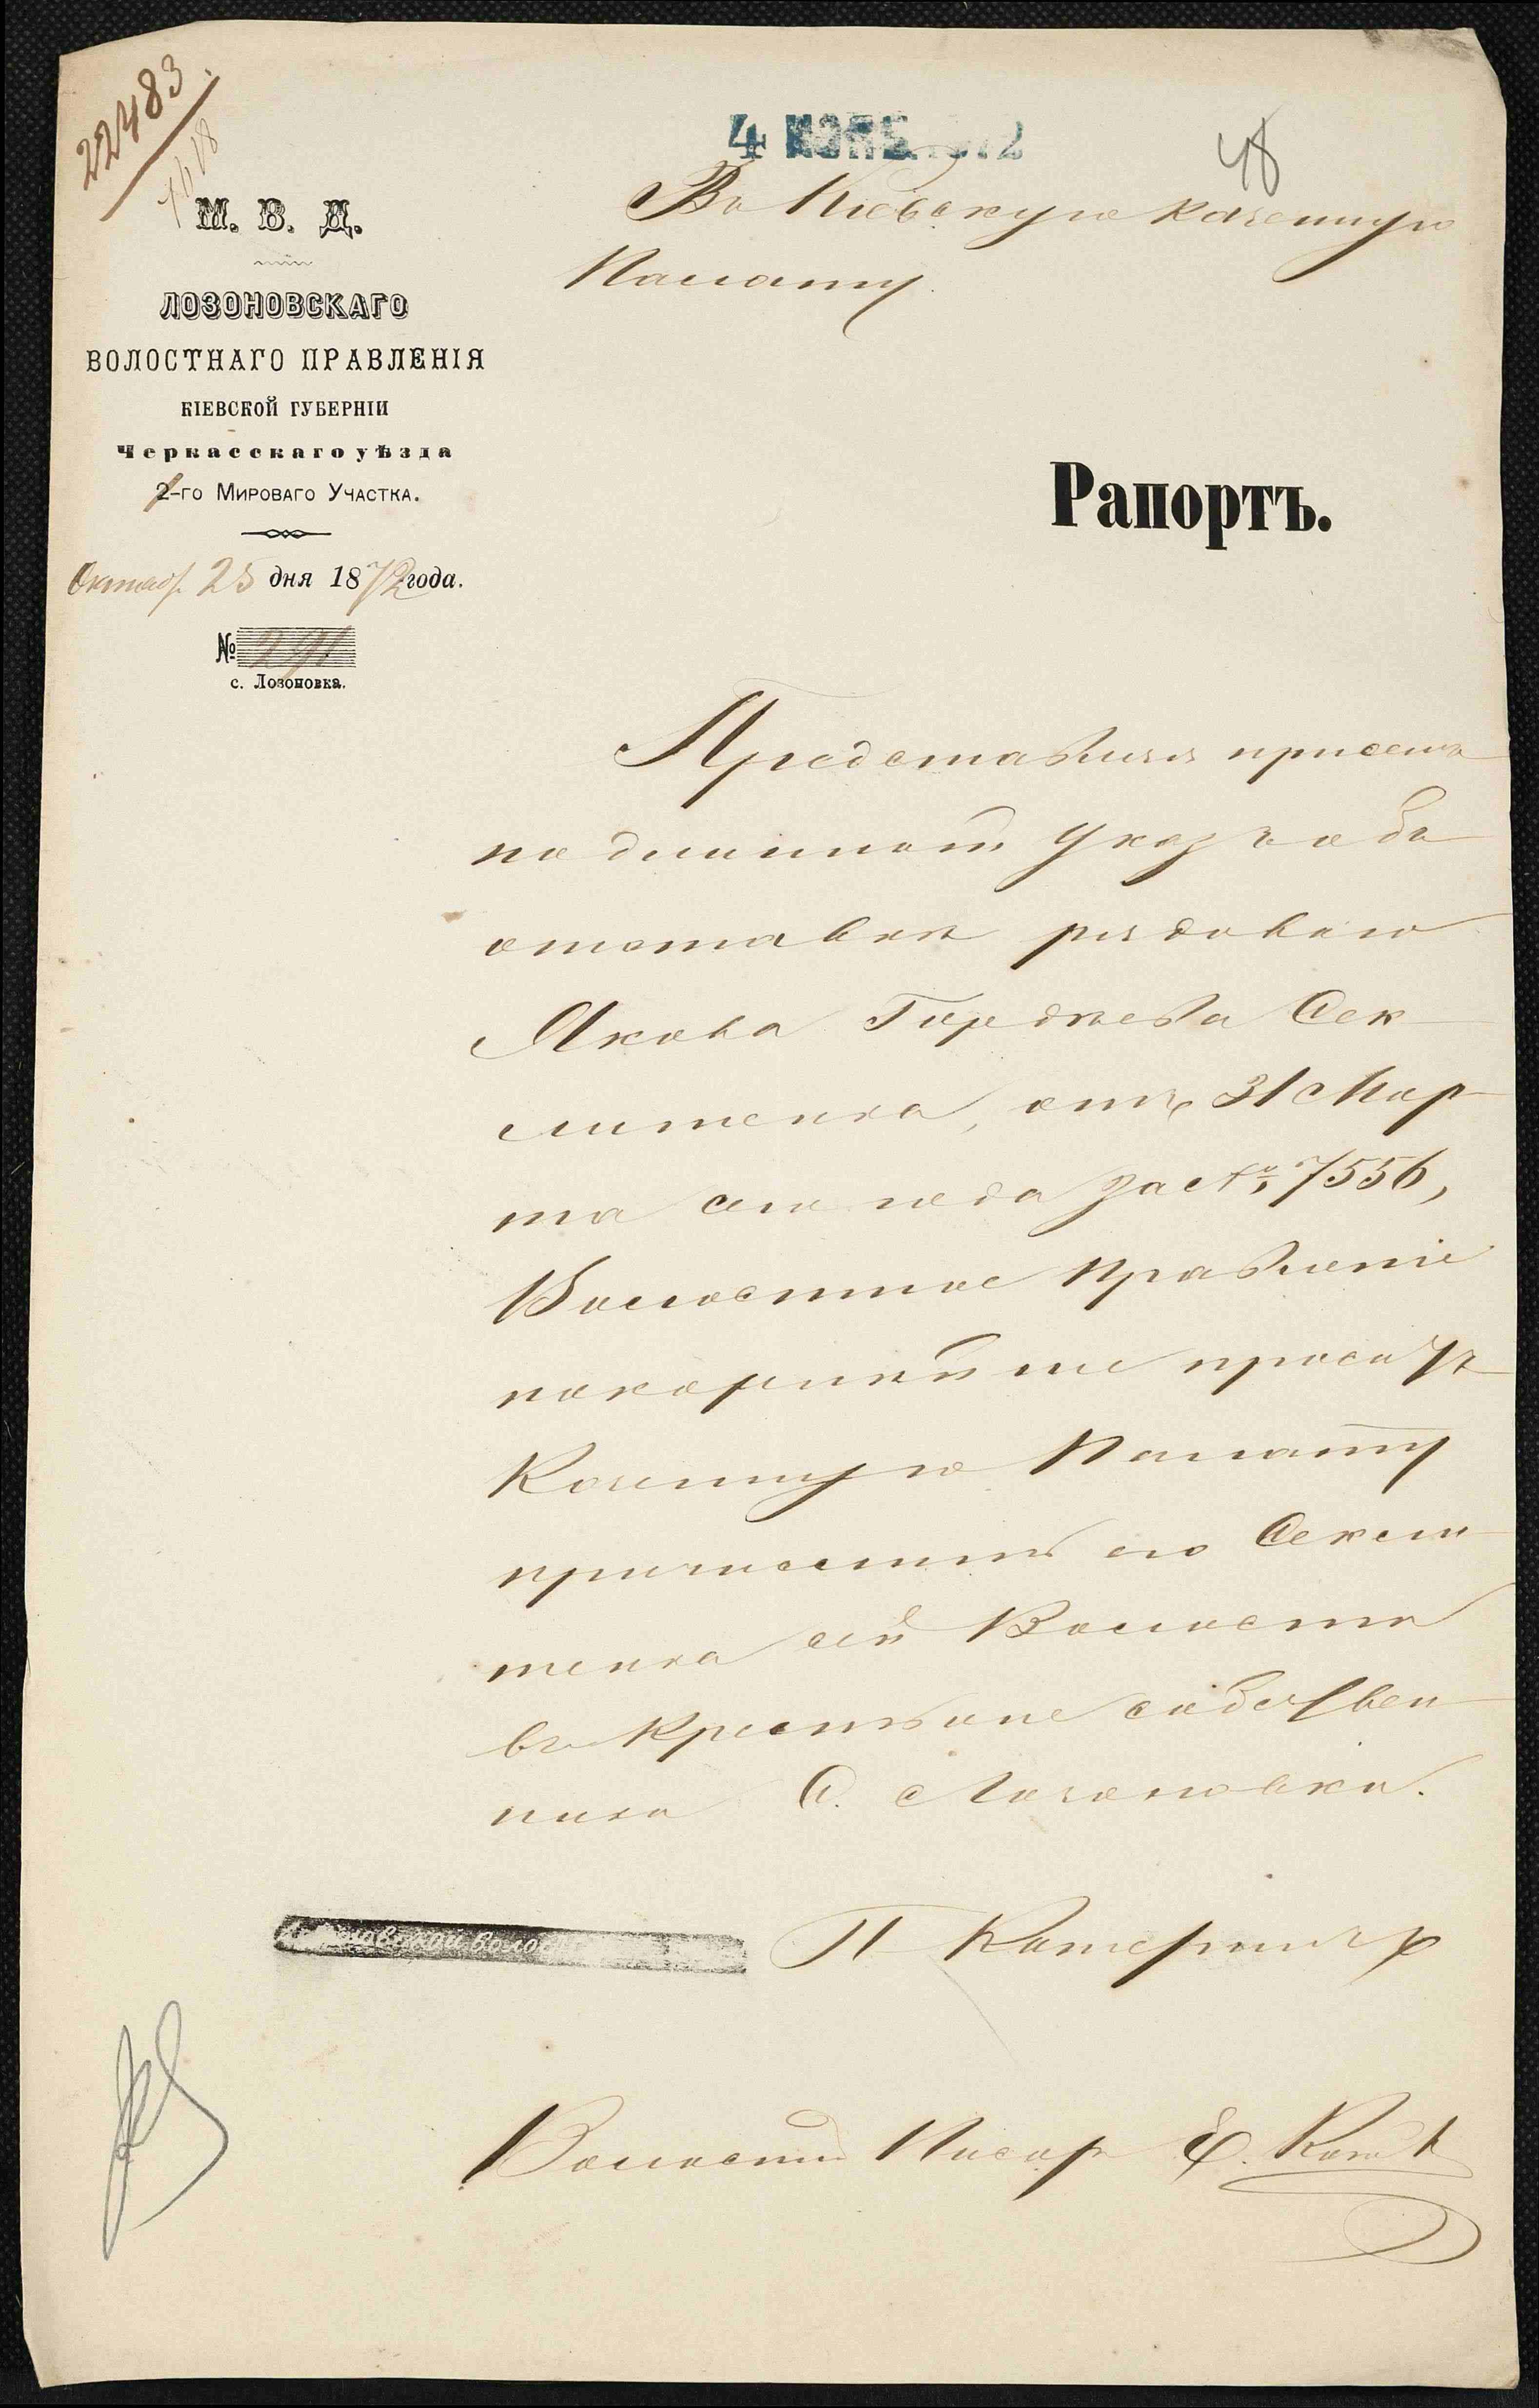 22483
48
М. В. Д.
ЛОЗОНОВСКАГО
ВОЛОСТНАГО ПРАВЛЕНІЯ
КІЕВСКОЙ ГУБЕРНІИ
Черкасскаго уѣзда
2-го Мироваго Участка.
Октяб. 25 дня 1872 года.
№ 291
с. Лозоновка.
4 НОЯБ. 1872
Въ Кіевскую Казенную
Палату.
Рапортъ.
Представляя присемъ
подлинный Указъ объ
отставкѣ рядоваго
Якова Гордѣева Сек
литенка, отъ 31 Мар
та сего года за № 7556,
Волостное Правленіе
покорнѣйше проситъ
Казенную Палату
причислить его Секли
тенка сей Волости
въ Крестьяне собствен
ники С. Лозоновки.
П Катеринич
Волостной Писарь Е.